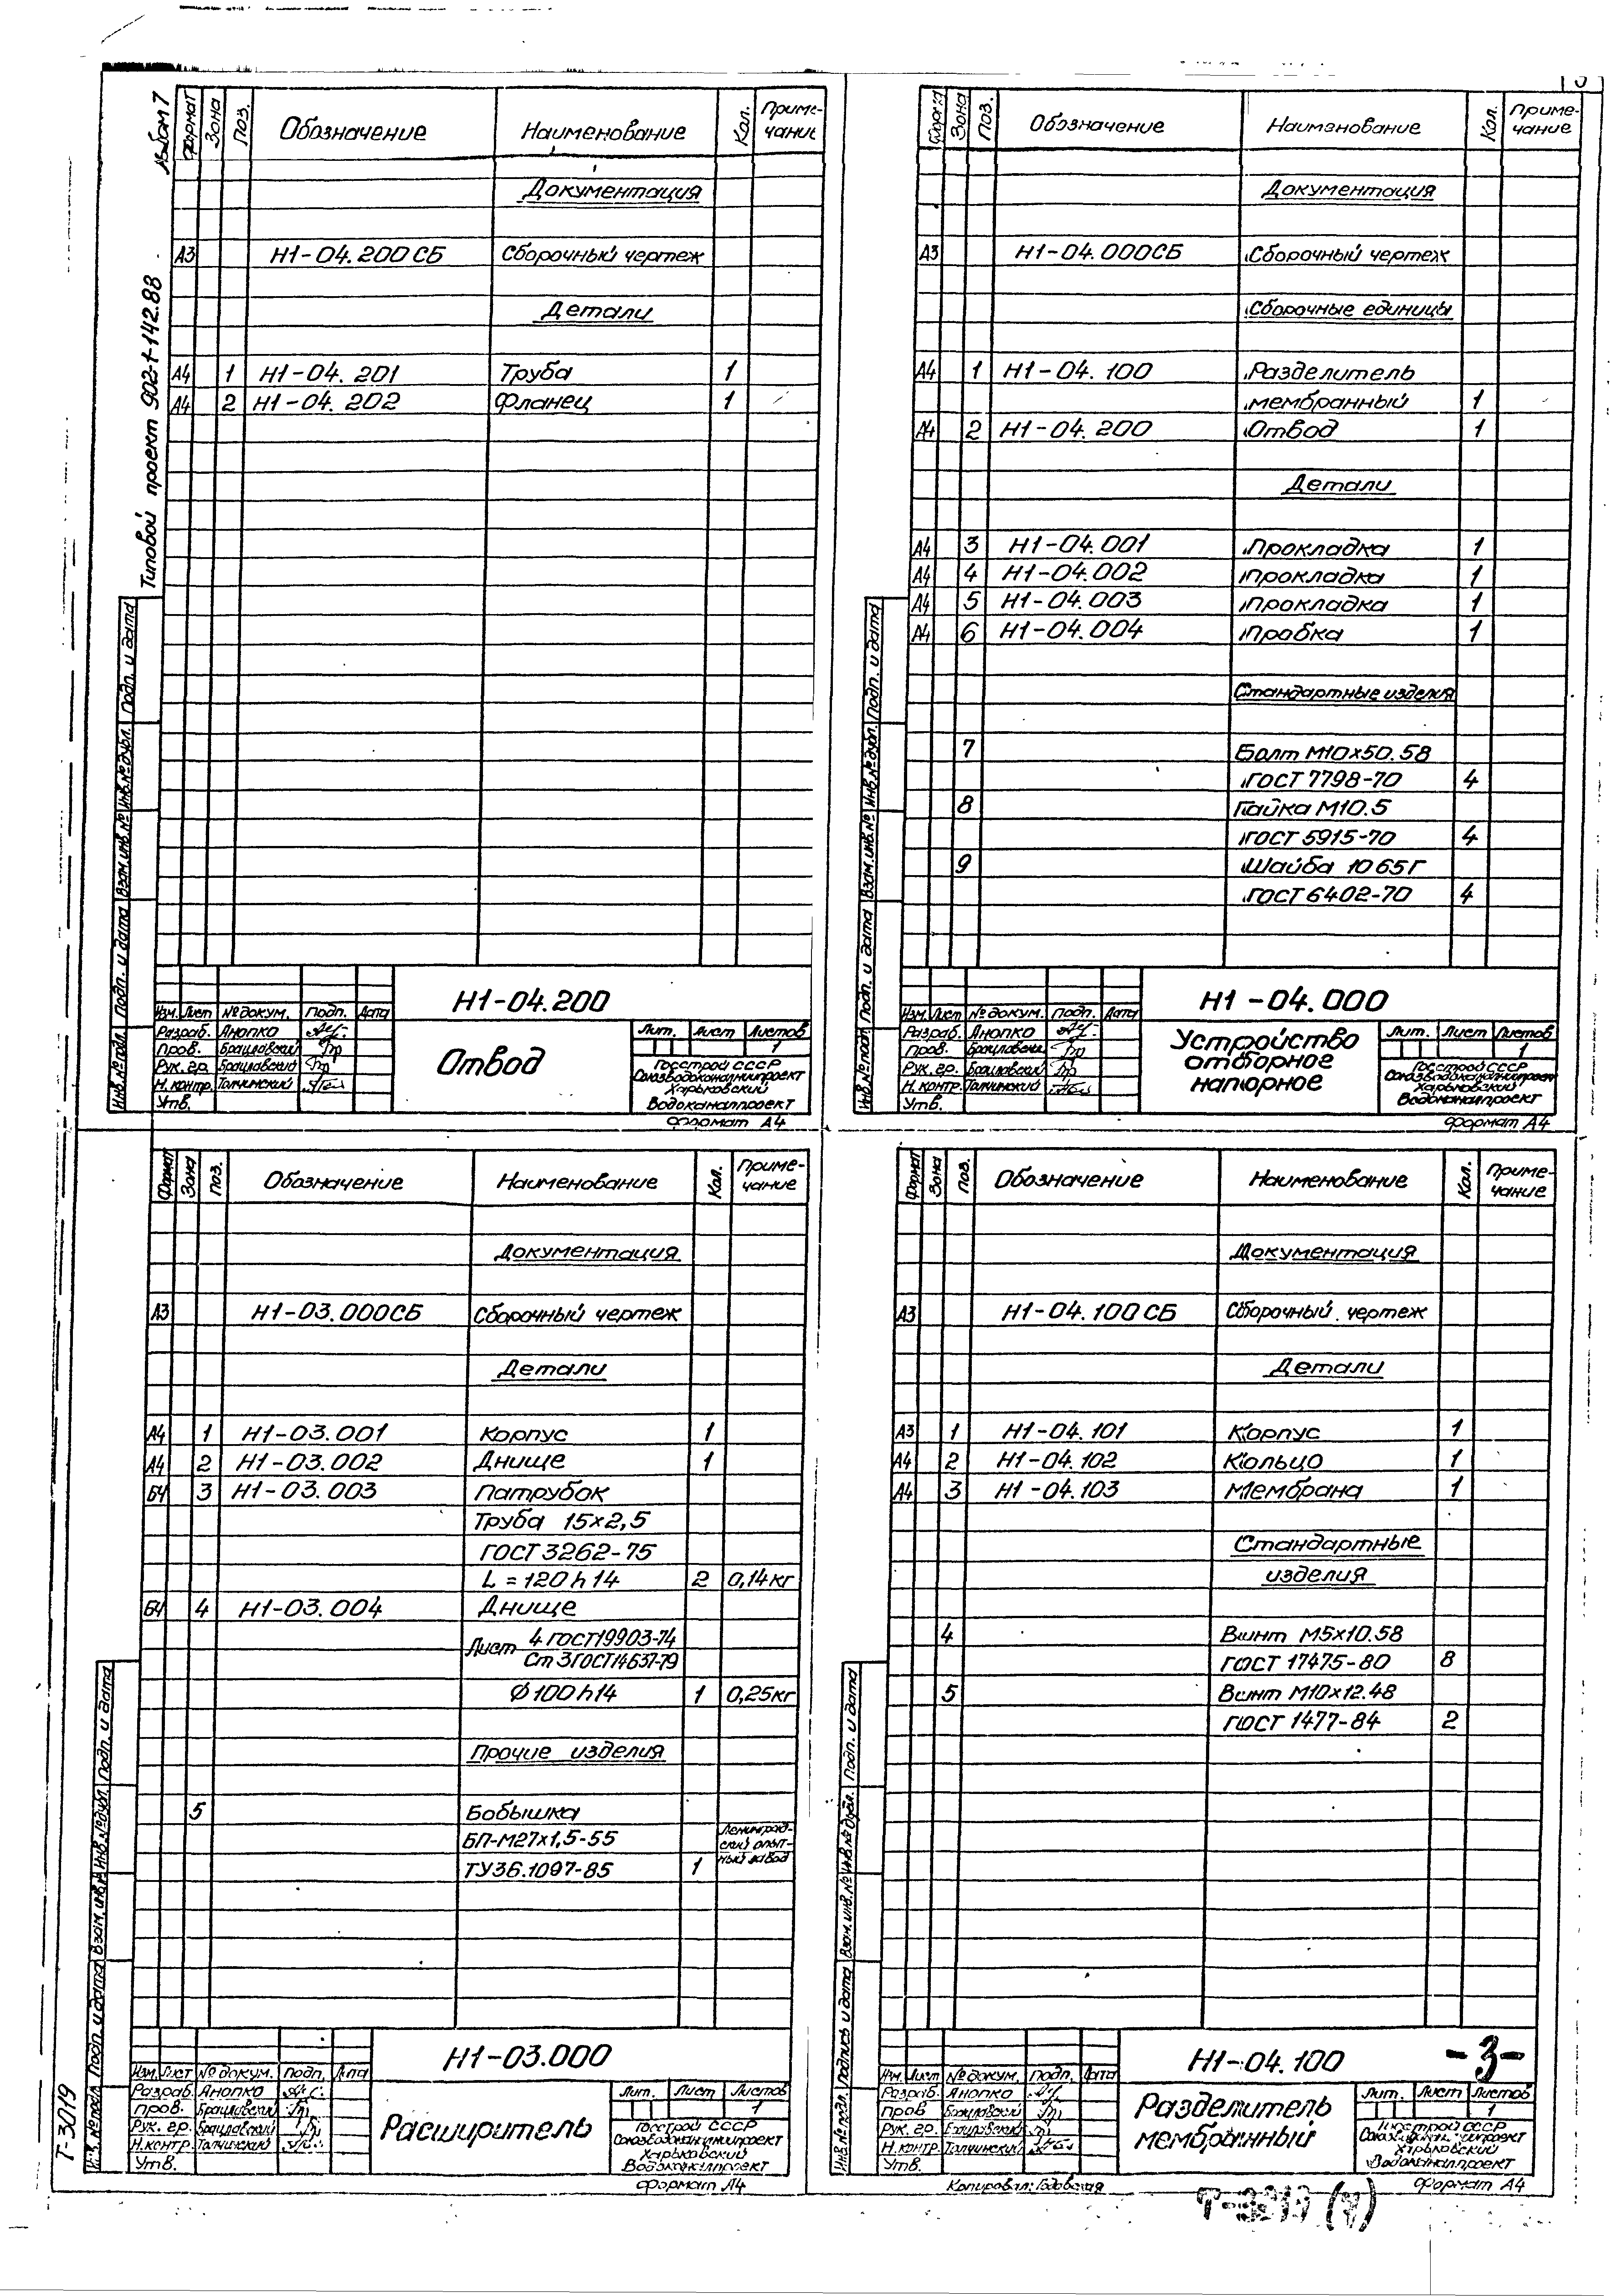 Альбом 7
Типовой проект 902-1-142.88
Формат Зона Поз. Обозначение Наименование Кол. Примечание
Документация
А3 Н1-04.200СБ Сборочный чертеж
Детали
А4 1 Н1-04.201 Труба 1
А4 2 Н1-04.202 Фланец 1
Инв.№подл. Подп. и дата Взам.инв.№ Инв.№дубл. Подп. и дата
Н1-04.200
Изм. Лист №докум. Подп. Дата
Разраб. Анопко
Пров. Брацлавский
Рук. гр. Брацлавский
Н.контр. Талчинский
Утв.
Отвод
Лит. Лист Листов
1
Госстрой СССР
Союзводоканалниипроект
Харьковский
Водоканалпроект
Формат А4
Формат Зона Поз. Обозначение Наименование Кол. Примечание
Документация
А3 Н1-04.000СБ Сборочный чертеж
Сборочные единицы
А4 1 Н1-04.100 Разделитель
мембранный 1
А4 2 Н1-04.200 Отвод 1
Детали
А4 3 Н1-04.001 Прокладка 1
А4 4 Н1-04.002 Прокладка 1
А4 5 Н1-04.003 Прокладка 1
А4 6 Н1-04.004 Пробка 1
Стандартные изделия
7 Болт М10х50.58
ГОСТ 7798-70 4
8 Гайка М10.5
ГОСТ 5915-70 4
9 Шайба 10 65Г
ГОСТ 6402-70 4
Инв.№подл. Подп. и дата Взам.инв.№ Инв.№дубл. Подп. и дата
Н1-04.000
Изм. Лист №докум. Подп. Дата
Разраб. Анопко
Пров. Брацлавский
Рук. гр. Брацлавский
Н.контр. Талчинский
Утв.
Устройство
отборное
напорное
Лит. Лист Листов
1
Госстрой СССР
Союзводоканалниипроект
Харьковский
Водоканалпроект
Формат А4
Формат Зона Поз. Обозначение Наименование Кол. Примечание
Документация
А3 Н1-03.000СБ Сборочный чертеж
Детали
А4 1 Н1-03.001 Корпус 1
А4 2 Н1-03.002 Днище 1
БЧ 3 Н1-03.003 Патрубок
Труба 15х2,5
ГОСТ 3262-75
L=120h14 2 0,14кг
БЧ 4 Н1-03.004 Днище
Лист 4 ГОСТ19903-74
Ст 3 ГОСТ14637-79
Ø100h14 1 0,25кг
Прочие изделия
5 Бобышка
БП-М27х1,5-55
ТУ36.1097-85 1
Ленинградский опытный завод
Инв.№подл. Подп. и дата Взам.инв.№ Инв.№дубл. Подп. и дата
Т-3019
Н1-03.000
Изм. Лист №докум. Подп. Дата
Разраб. Анопко
Пров. Брацлавский
Рук. гр. Брацлавский
Н.контр. Талчинский
Утв.
Расширитель
Лит. Лист Листов
1
Госстрой СССР
Союзводоканалниипроект
Харьковский
Водоканалпроект
Формат А4
Формат Зона Поз. Обозначение Наименование Кол. Примечание
Документация
А3 Н1-04.100СБ Сборочный чертеж
Детали
А3 1 Н1-04.101 Корпус 1
А4 2 Н1-04.102 Кольцо 1
А4 3 Н1-04.103 Мембрана 1
Стандартные
изделия
4 Винт М5х10.58
ГОСТ 17475-80 8
5 Винт М10х12.48
ГОСТ 1477-84 2
Инв.№подл. Подпись и дата Взам.инв.№ Инв.№дубл. Подп. и дата
Н1-04.100
-3-
Изм. Лист №докум. Подп. Дата
Разраб. Анопко
Пров Брацлавский
Рук. гр. Брацлавский
Н.контр. Талчинский
Утв.
Разделитель
мембранный
Лит. Лист Листов
1
Госстрой СССР
Союзводоканалниипроект
Харьковский
Водоканалпроект
Копировал: Годовская
Формат А4